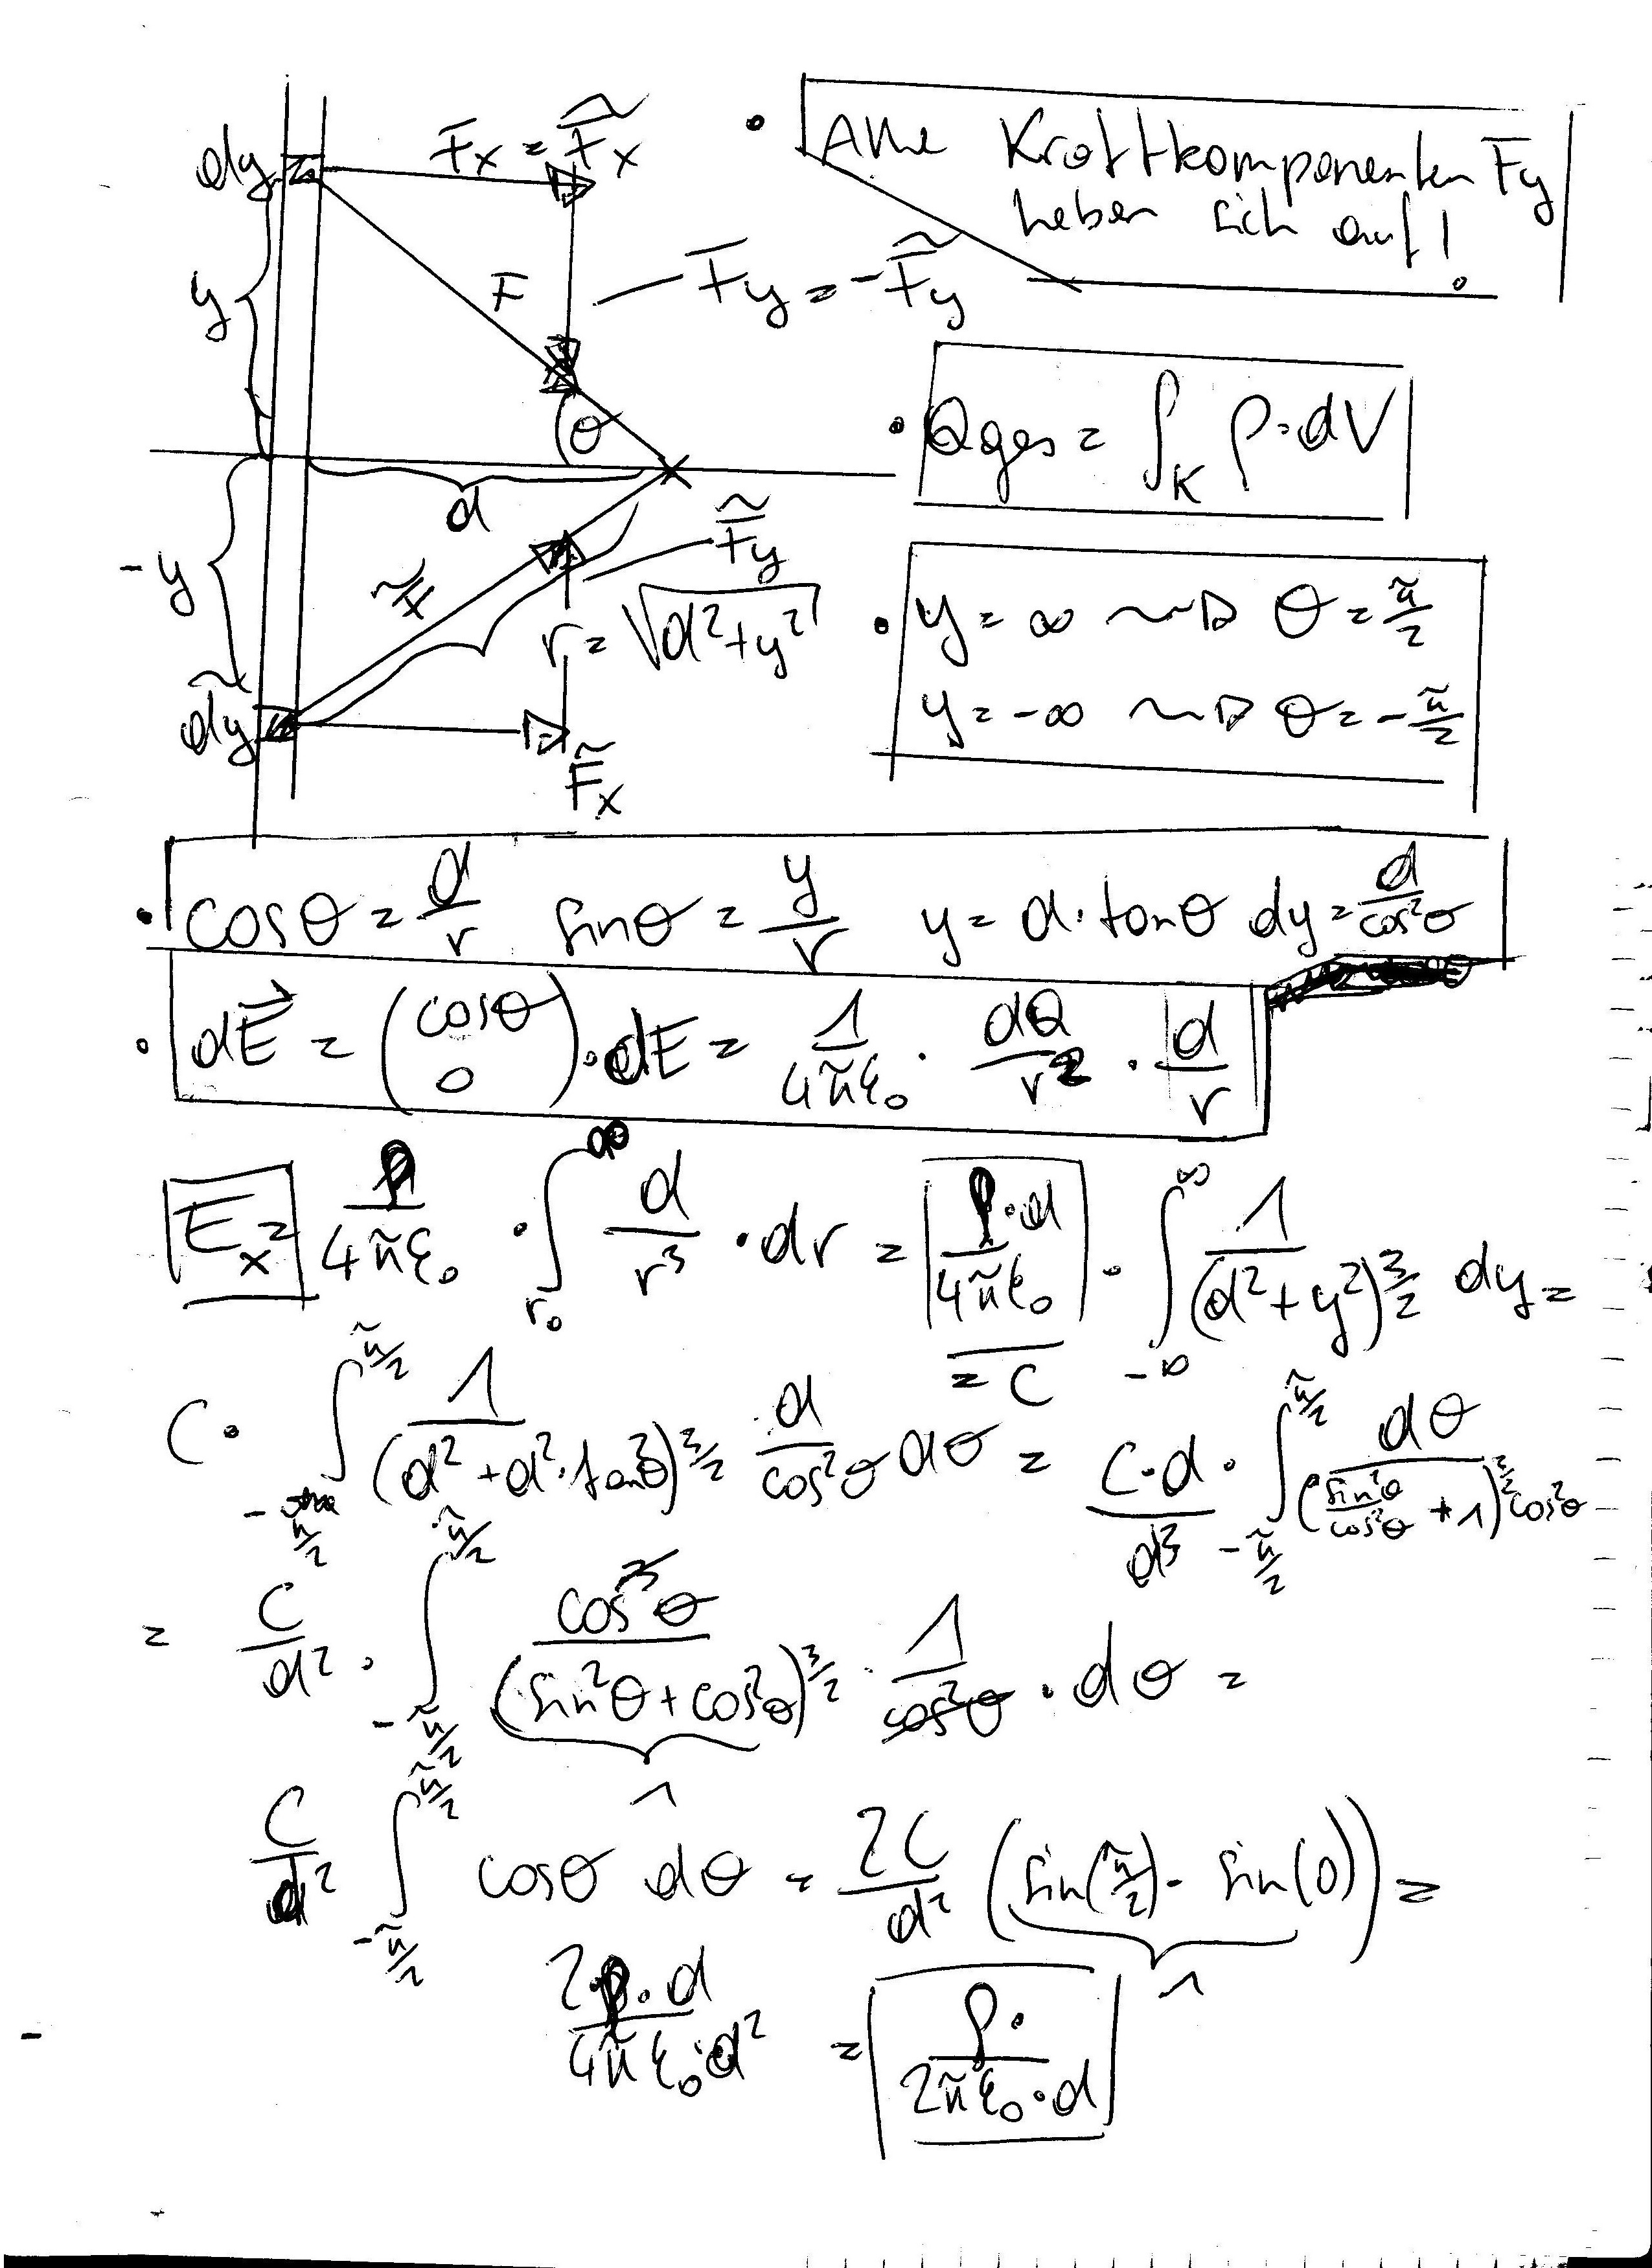 dy Fx = F̃x
• Alle Kraftkomponenten Fy
heben sich auf!
y F − Fy = −F̃y
θ
• Qges = ∫_K ρ·dV
d
−y F̃ F̃y
r = √(d²+y²)
• y = ∞ ⇝ θ = π/2
y = −∞ ⇝ θ = −π/2
d̃y F̃x
• cosθ = d/r sinθ = y/r y = d·tanθ dy = d/cos²θ
• dE⃗ = (cosθ 0)·dE = 1/4πε₀ · dQ/r² · d/r
Ex = ρ/4πε₀ · ∫_{r₀}^{∞} d/r³ · dr = ρ·d/4πε₀ · ∫_{−∞}^{∞} 1/(d²+y²)^{3/2} dy =
= C
C · ∫_{−π/2}^{π/2} 1/(d²+d²·tan²θ)^{3/2} · d/cos²θ dθ = C·d/d³ · ∫_{−π/2}^{π/2} dθ/(sin²θ/cos²θ + 1)^{3/2} cos²θ
= C/d² · ∫_{−π/2}^{π/2} cos³θ/(sin²θ+cos²θ)^{3/2} · 1/cos²θ · dθ =
1
C/d² ∫_{−π/2}^{π/2} cosθ dθ = 2C/d² (sin(π/2) − sin(0)) =
1
2·ρ·d/4πε₀·d² = ρ·/2πε₀·d